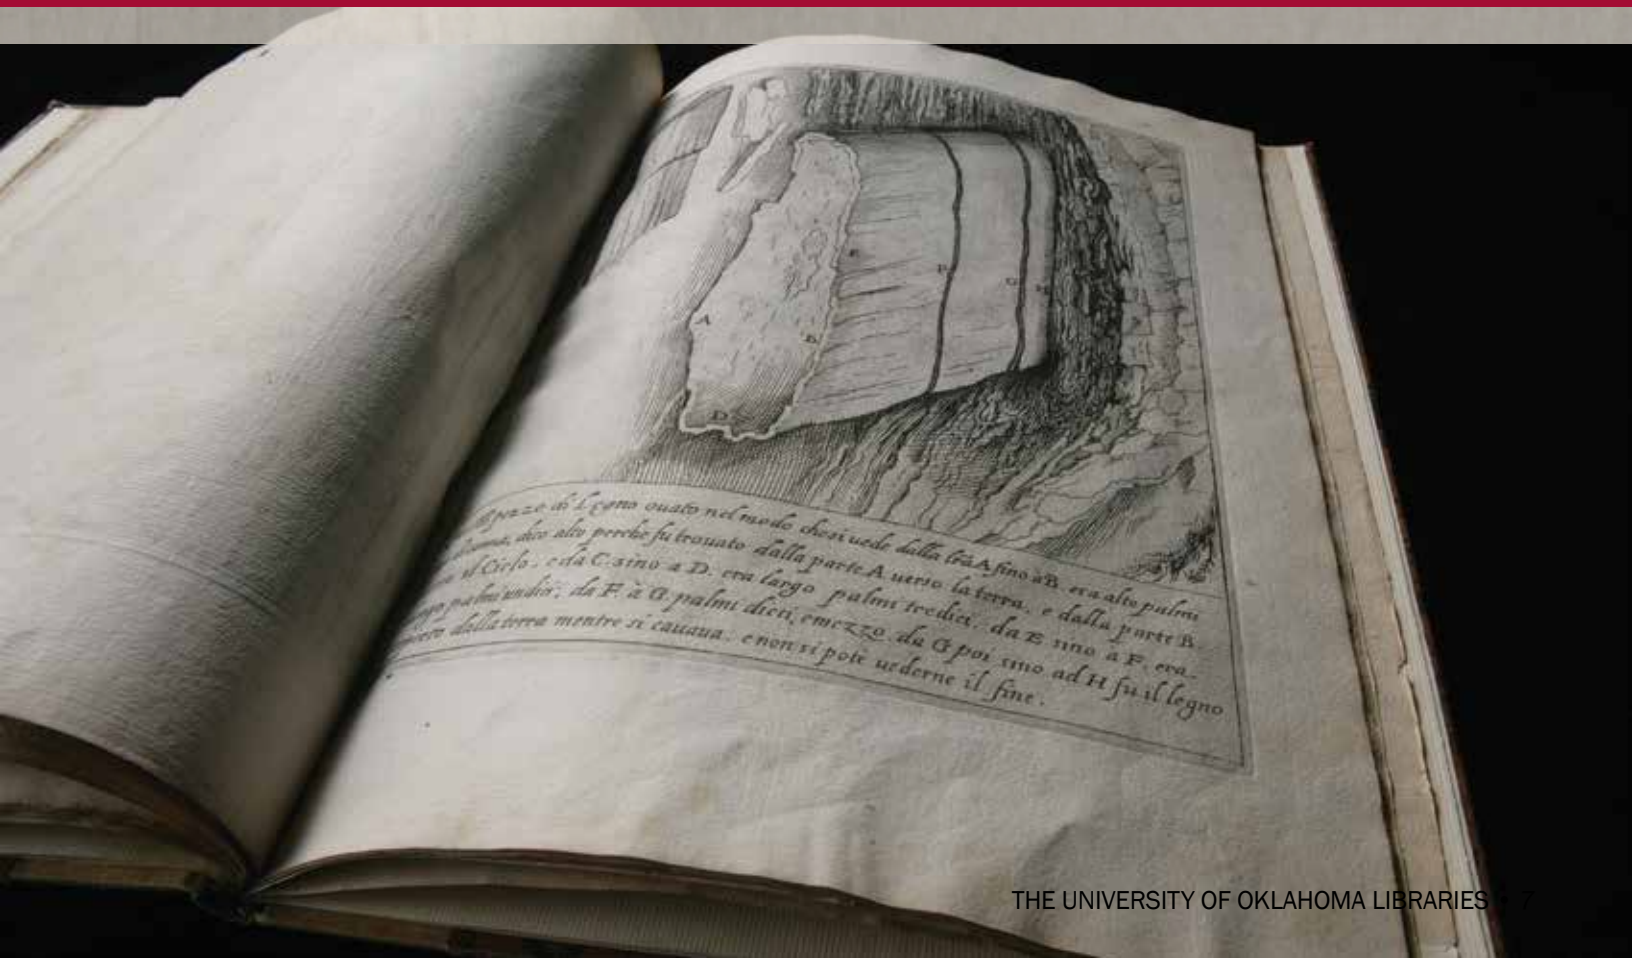 A
B
D
E
F
G
H
pezzo di Legno ouato nel modo che si uede dalla lr̃a A fino à B. era alto palmi
dico alto perche fu trouato dalla parte A uerso la terra, e dalla parte B
il Cielo, e da C. sino a D. era largo palmi tredici, da E sino a F. era
palmi undici, da F. à G. palmi dieci, e mezzo, da G poi sino ad H fu il legno
dalla terra mentre si cauaua, e non si potè uederne il fine.
THE UNIVERSITY OF OKLAHOMA LIBRARIES 7